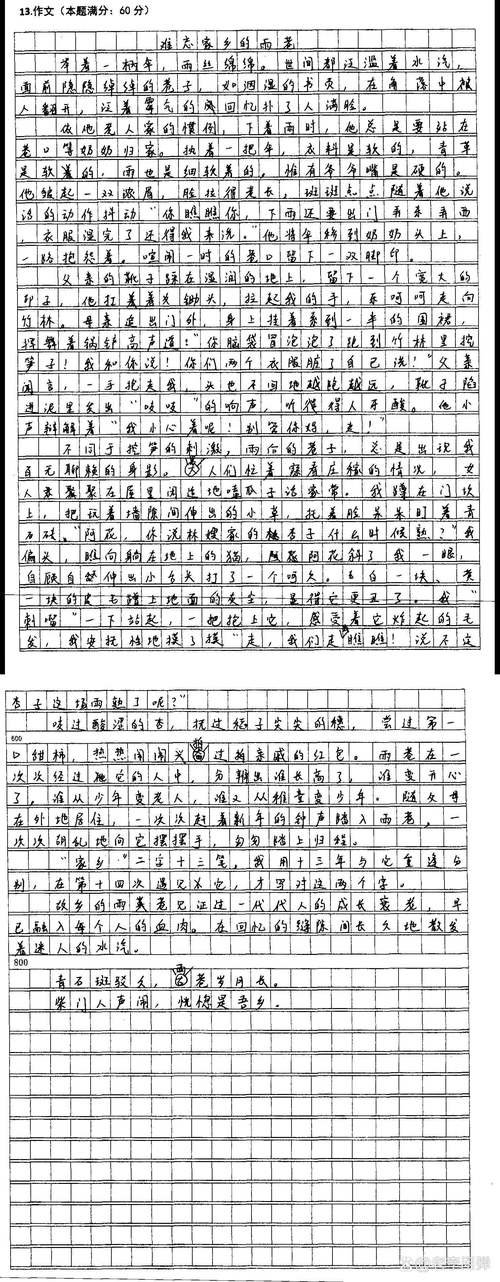 13.作文（本题满分：60分）
难忘家乡的雨巷
举着一柄伞，雨丝绵绵。世间都泛滥着水汽，
面前隐隐绰绰的巷子，如烟湿的书页，在角落中被
人翻开，泛着霉气的回忆扑了人满脸。
做他老人家的惯例，下着雨时，他总是要站在
巷口等奶奶归家。执着一把伞，衣料是软的，青草
是软着的，雨也是细软着的，惟有爷爷嘴是硬的。
他皱起一双浓眉，脸拉得老长，斑斑点点随着他说
话的动作抖动“你瞧瞧你，下雨还要出门弄东弄西
，衣服湿完了还得我来洗。”他将伞倾到奶奶头上，
一路抱怨着。喧闹一时的巷口留下一双脚印。
父亲的靴子踩在湿润的地上，留下一个宽大的
印子，他扛着锄头，拉起我的手，乐呵呵走向
竹林。母亲追出门外，身上挂着系到一半的围裙，
挥舞着锅铲高声道：“你脑袋冒泡泡了跑到竹林里挖
笋子！我和你说！你们两个衣服脏了自己洗！”父亲
闻言，一手抱走我，头也不回地越跑越远，靴子陷
进泥里发出“吱吱”的响声，听得人牙酸。他小
声辩解着“我小心着呢！别管你妈，走！”
不同于挖笋的刺激，雨后的巷子，总是出现我
百无聊赖的身影。男人们忙着庄稼的情况，女
人家聚在屋里闲适地嗑瓜子话家常。我蹲在门坎
上，把玩着墙隙间伸出的小草，托着脸呆呆盯着青
石砖。“阿花，你说林嫂家的杏子什么时候熟？”我
偏头，瞧向躺在地上的猫，阿花斜了我一眼，
自顾自伸出小舌头打了一个呵欠。白一块、黄
一块的皮毛蹭上地面的灰尘，显得它更丑了。我“
刺啦”一下站起，一把抱上它，感受着它炸起的毛
发，我安抚性地摸了摸“走，我们去瞧瞧！说不定
杏子这场雨熟了呢？”
啖过酸涩的杏，抚过稻子尖尖的穗，尝过第一
600
口甜柿，热热闹闹又过拍亲戚的红包。雨巷在一
次次经过它的人中，分辨出谁长高了，谁变开心
了，谁从少年变老人，谁又从稚童变少年。随父母
在外地居住，一次次赶着新年的钟声踏入雨巷，一
次次胡乱地向它摆摆手，匆匆踏上归程。
“家乡”二字十三笔，我用十三年与它重逢分
别，在第十四次遇见它，才写对这两个字。
故乡的雨巷见证过一代代人的成长衰老，早
已融入每个人的血肉。在回忆的缝隙间长久地散发
着迷人的水汽。
800
青石斑驳久，雨巷岁月长。
柴门人声闹，恍惚是吾乡。